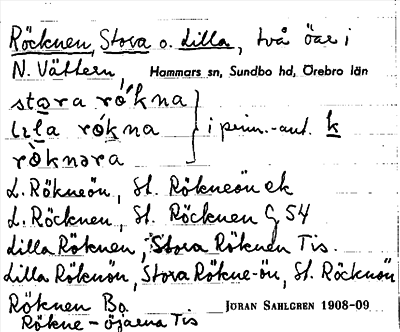 Röcknen, Stora o. Lilla, två öar i
N. Vättern, Hammars sn, Sundbo hd, Örebro län
stora rókna
lila rókna } i penn.-ant. k
röknara
L. Rökneön, St. Rökneön ek
L. Röcknen, St. Röcknen G 54
Lilla Röknen, Stora Röknen Tis.
Lilla Röknön, Stora Rökne-ön, St. Röcknön
Röknen Ba JÖRAN SAHLGREN 1908-09
Rökne-öjarna Tis